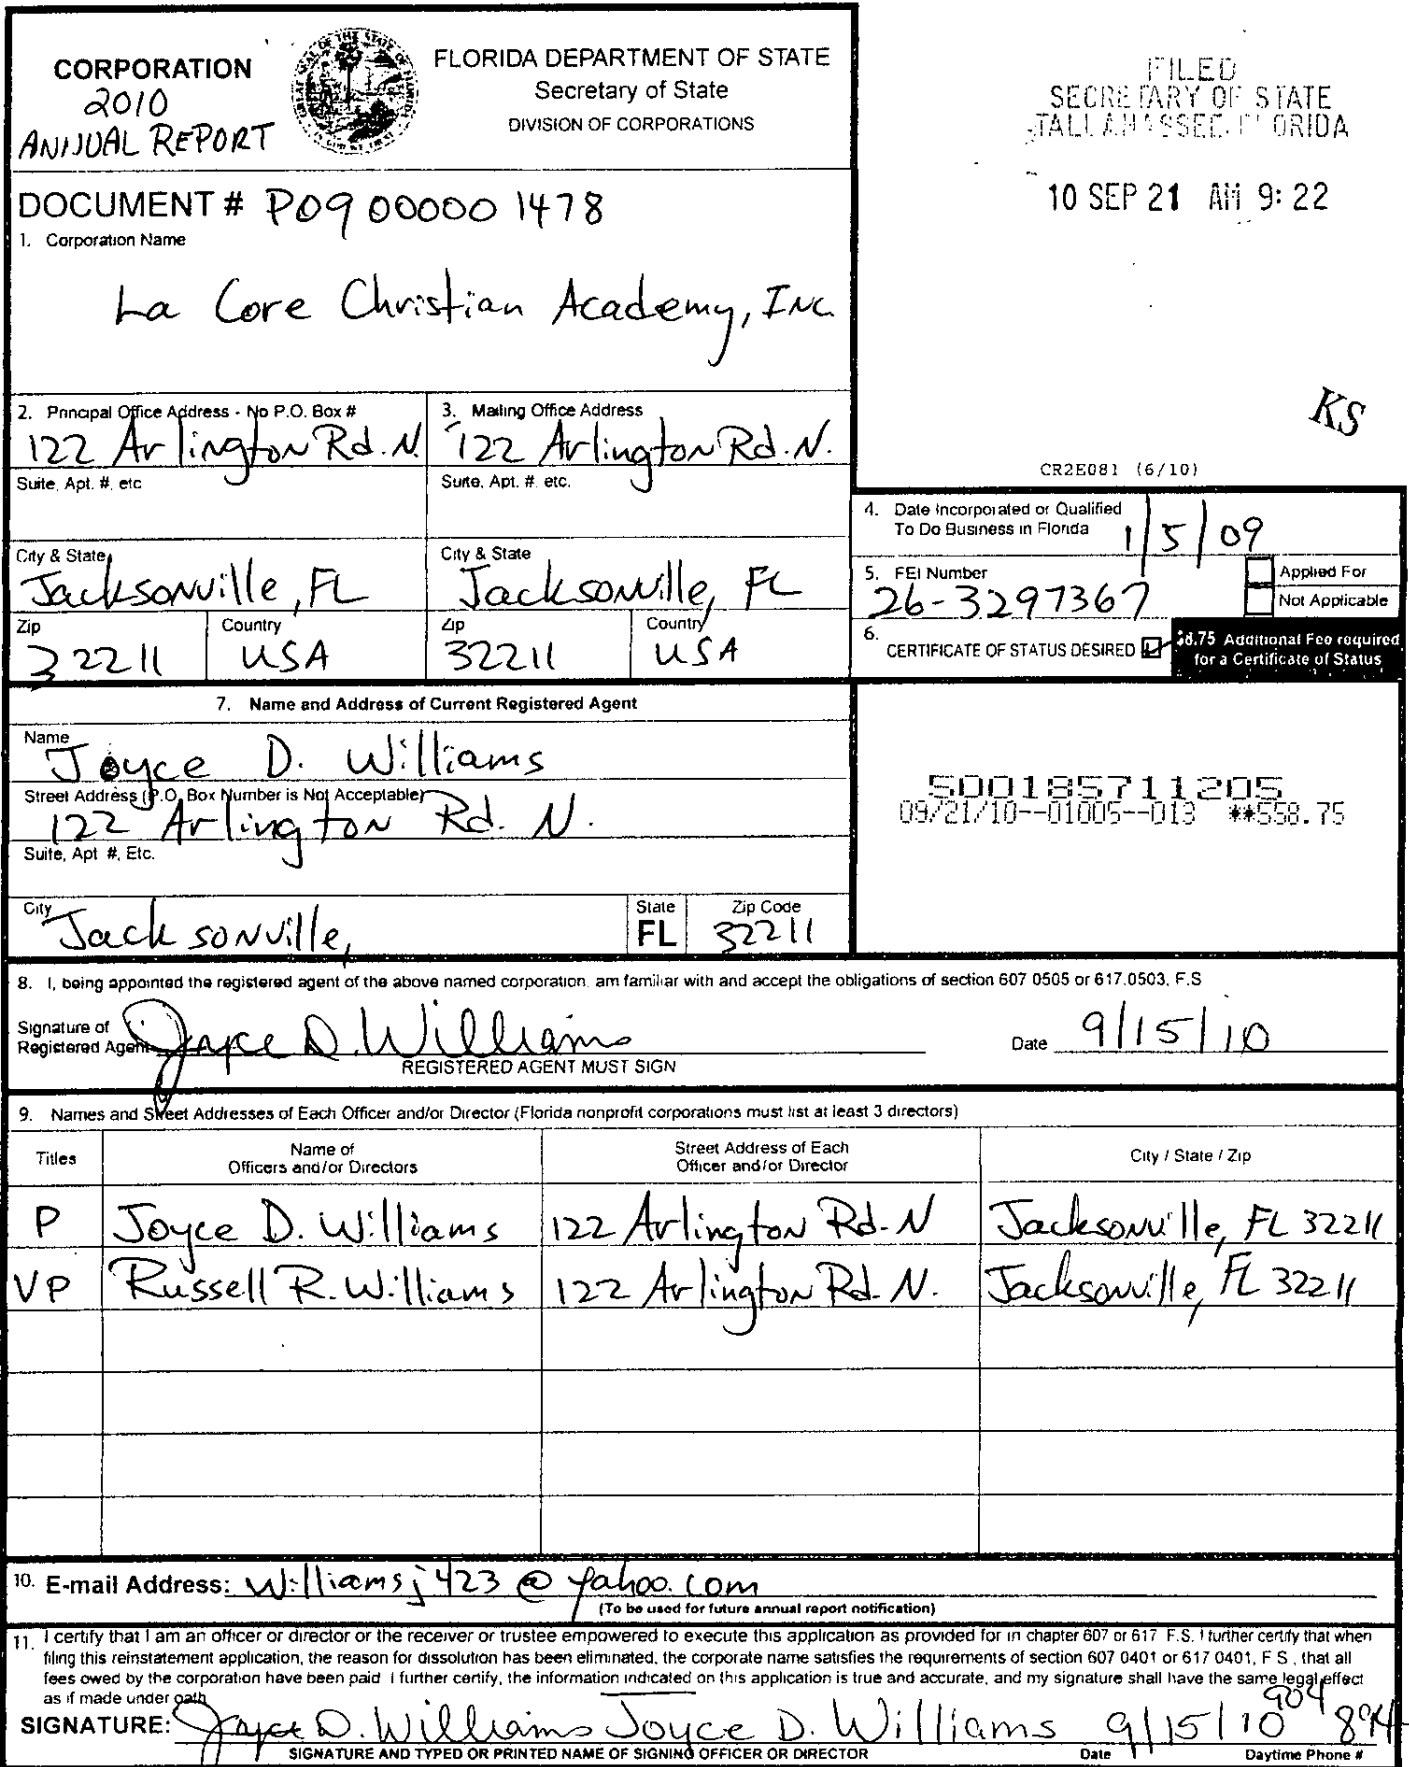 CORPORATION
2010
ANNUAL REPORT
FLORIDA DEPARTMENT OF STATE
Secretary of State
DIVISION OF CORPORATIONS
FILED
SECRETARY OF STATE
TALLAHASSEE, FLORIDA
10 SEP 21 AM 9: 22
DOCUMENT # P09000001478
1. Corporation Name
La Core Christian Academy, Inc.
KS
CR2E081 (6/10)
2. Principal Office Address - No P.O. Box #
122 Arlington Rd. N.
Suite, Apt. #, etc
City & State
Jacksonville, FL
Zip
32211
Country
USA
3. Mailing Office Address
122 Arlington Rd. N.
Suite, Apt. #, etc.
City & State
Jacksonville, FL
Zip
32211
Country
USA
4. Date Incorporated or Qualified
To Do Business in Florida 1/5/09
5. FEI Number
26-3297367
Applied For
Not Applicable
6. CERTIFICATE OF STATUS DESIRED
$8.75 Additional Fee required
for a Certificate of Status
7. Name and Address of Current Registered Agent
Name
Joyce D. Williams
Street Address (P.O. Box Number is Not Acceptable)
122 Arlington Rd. N.
Suite, Apt #, Etc.
City
Jacksonville,
State
FL
Zip Code
32211
500185711205
09/21/10--01005--013 **558.75
8. I, being appointed the registered agent of the above named corporation, am familiar with and accept the obligations of section 607 0505 or 617.0503, F.S
Signature of
Registered Agent Joyce D. Williams
REGISTERED AGENT MUST SIGN
Date 9/15/10
9. Names and Street Addresses of Each Officer and/or Director (Florida nonprofit corporations must list at least 3 directors)
Titles
Name of
Officers and/or Directors
Street Address of Each
Officer and/or Director
City / State / Zip
P Joyce D. Williams 122 Arlington Rd. N Jacksonville, FL 32211
VP Russell R. Williams 122 Arlington Rd. N. Jacksonville, FL 32211
10. E-mail Address: Williamsj423@yahoo.com
(To be used for future annual report notification)
11. I certify that I am an officer or director or the receiver or trustee empowered to execute this application as provided for in chapter 607 or 617 F.S. I further certify that when
filing this reinstatement application, the reason for dissolution has been eliminated, the corporate name satisfies the requirements of section 607 0401 or 617 0401, F S , that all
fees owed by the corporation have been paid I further certify, the information indicated on this application is true and accurate, and my signature shall have the same legal effect
as if made under oath
SIGNATURE: Joyce D. Williams Joyce D. Williams 9/15/10 904
SIGNATURE AND TYPED OR PRINTED NAME OF SIGNING OFFICER OR DIRECTOR
Date
Daytime Phone #